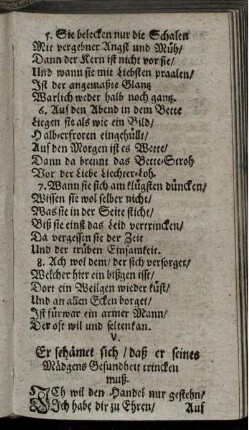 5. Sie belecken nur die Schalen
Mit vergebner Angst und Müh/
Dann der Kern ist nicht vor sie/
Und wann sie mit Liebsten praalen/
Ist der angemaßte Glantz
Warlich weder halb noch gantz.
6. Auf den Abend in dem Bette
Liegen sie als wie ein Bild/
Halb-erfroren eingehüllt/
Auf den Morgen ist es Wette/
Dann da brennt das Bette-Stroh
Vor der Liebe Liechter-Loh.
7. Wann sie sich am klügsten düncken/
Wissen sie wol selber nicht/
Was sie in der Seite sticht/
Biß sie einst das Leid vertrincken/
Da vergessen sie der Zeit
Und der trüben Einsamkeit.
8. Ach wol dem/ der sich versorget/
Welcher hier ein bißgen isst/
Dort ein Weilgen wieder küst/
Und an allen Ecken borget/
Ist fürwar ein armer Mann/
Der oft wil und selten kan.
V.
Er schämet sich/ daß er seines
Mädgens Gesundheit trincken
muß.
ICh wil den Handel nur gestehn/
Ich habe dir zu Ehren/ Auf